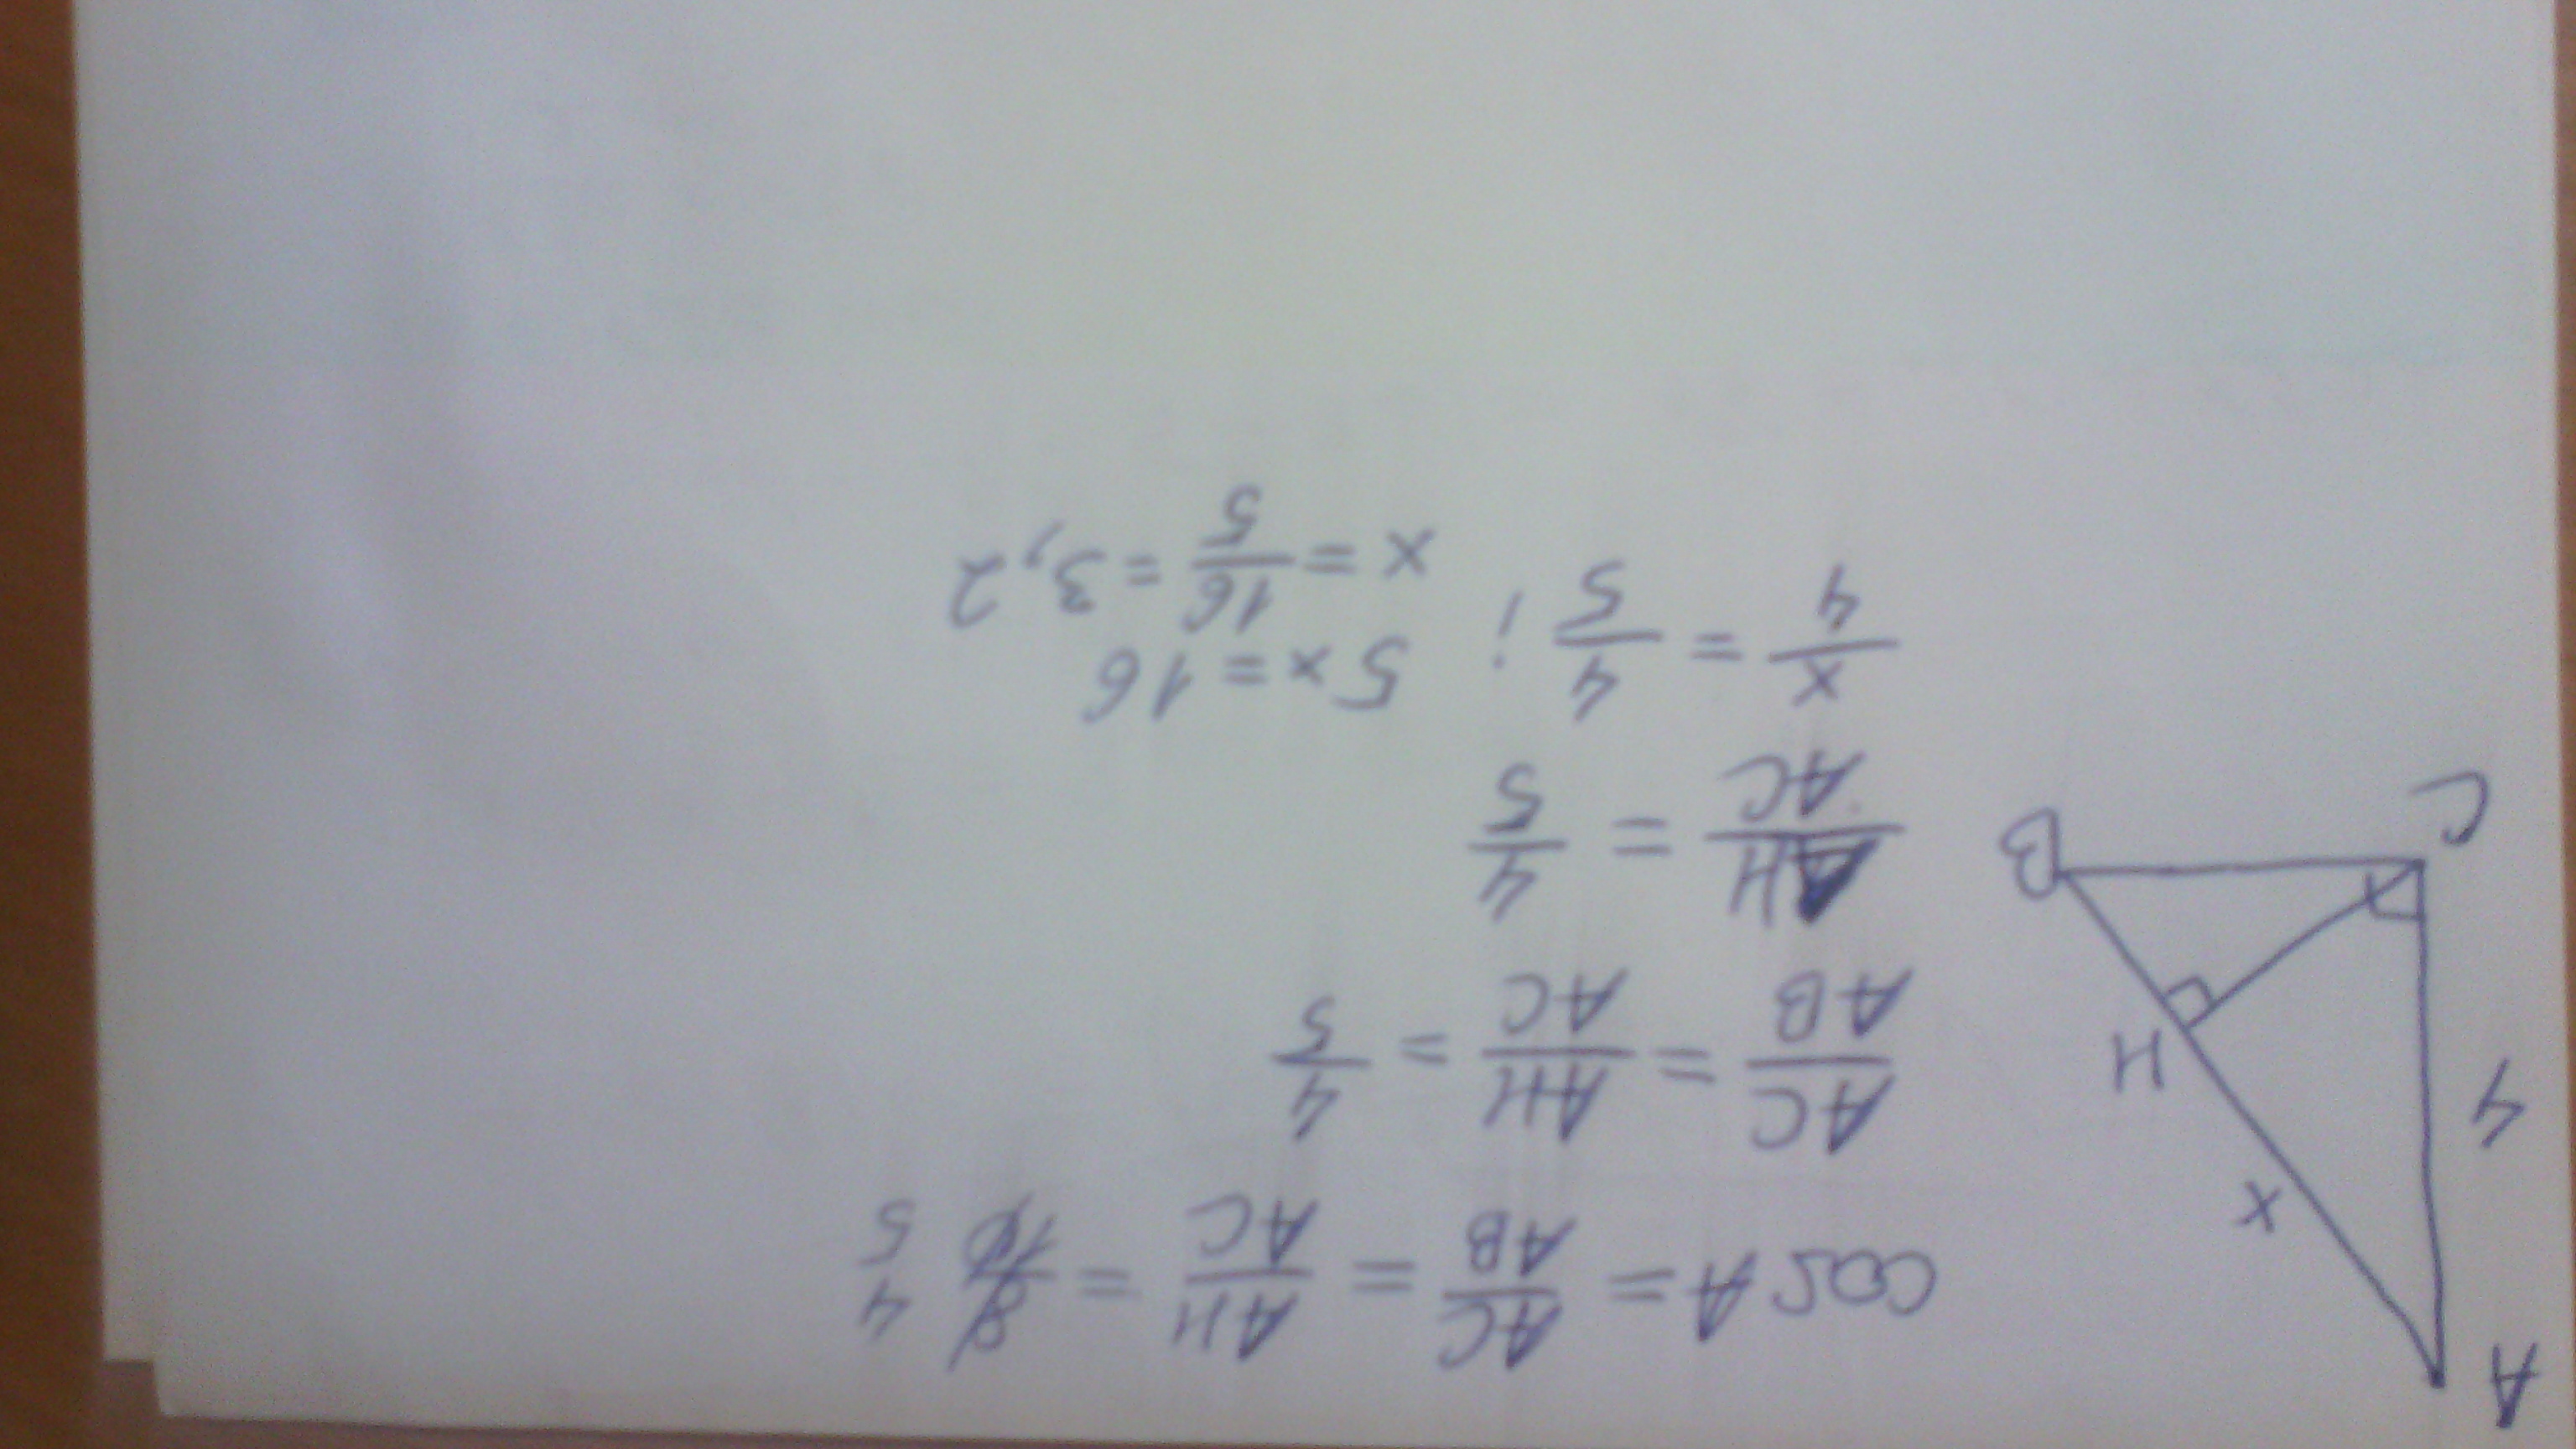 A
4
x
H
C
B
cos A = AC/AB = AH/AC = 8/10 4/5
AC/AB = AH/AC = 4/5
AH/AC = 4/5
x/4 = 4/5 ; 5x = 16
x = 16/5 = 3,2